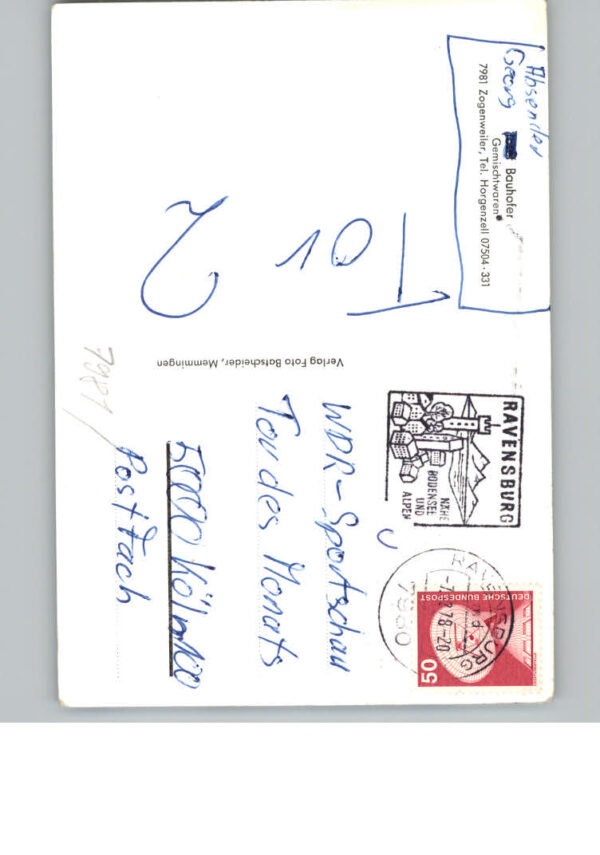 Absender
Georg Bauhofer
Gemischtwaren
7981 Zogenweiler, Tel. Horgenzell 07504-331
Tor
2
Verlag Foto Batscheider, Memmingen
7981
RAVENSBURG
NÄHE
BODENSEE
UND
ALPEN
RAVENSBURG
78-20
7980
DEUTSCHE BUNDESPOST
50
WDR-Sportschau
Tor des Monats
5000 Köln 100
Postfach